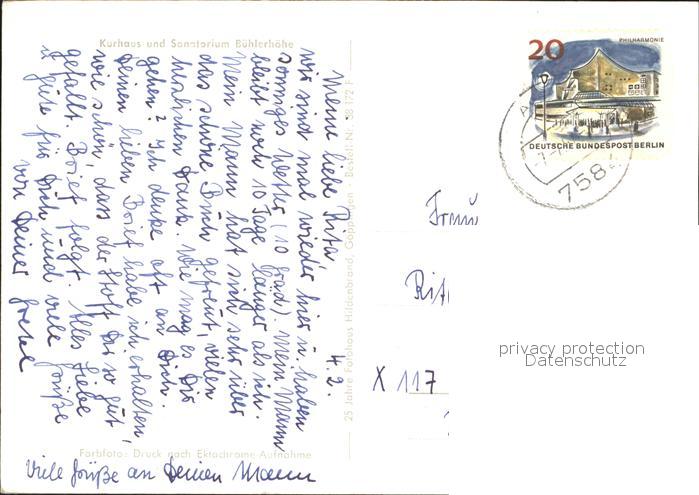 Kurhaus und Sanatorium Bühlerhöhe
4.2.
Meine liebe Rita,
wir sind mal wieder hier u. haben
sonniges Wetter (10 Grad). Mein Mann
bleibt noch 10 Tage länger als ich.
Mein Mann hat sich sehr über
das schöne Buch gefreut, vielen
herzlichen Dank. Wie mag es Dir
gehen? Ich denke oft an Dich.
Deinen lieben Brief habe ich erhalten,
wie schön, dass der Stoff Dir so gut
gefällt. Brief folgt. Alles Liebe
u. gute für Dich und viele Grüße
von Deiner Gretel
Viele Grüße an Deinen Mann
Farbfoto: Druck nach Ektachrome-Aufnahme
25 Jahre Farbhaus Hildenbrand, Göppingen - Bestell Nr.
20
PHILHARMONIE
DEUTSCHE BUNDESPOST BERLIN
758
Frau
Rit
X 117
privacy protection
Datenschutz